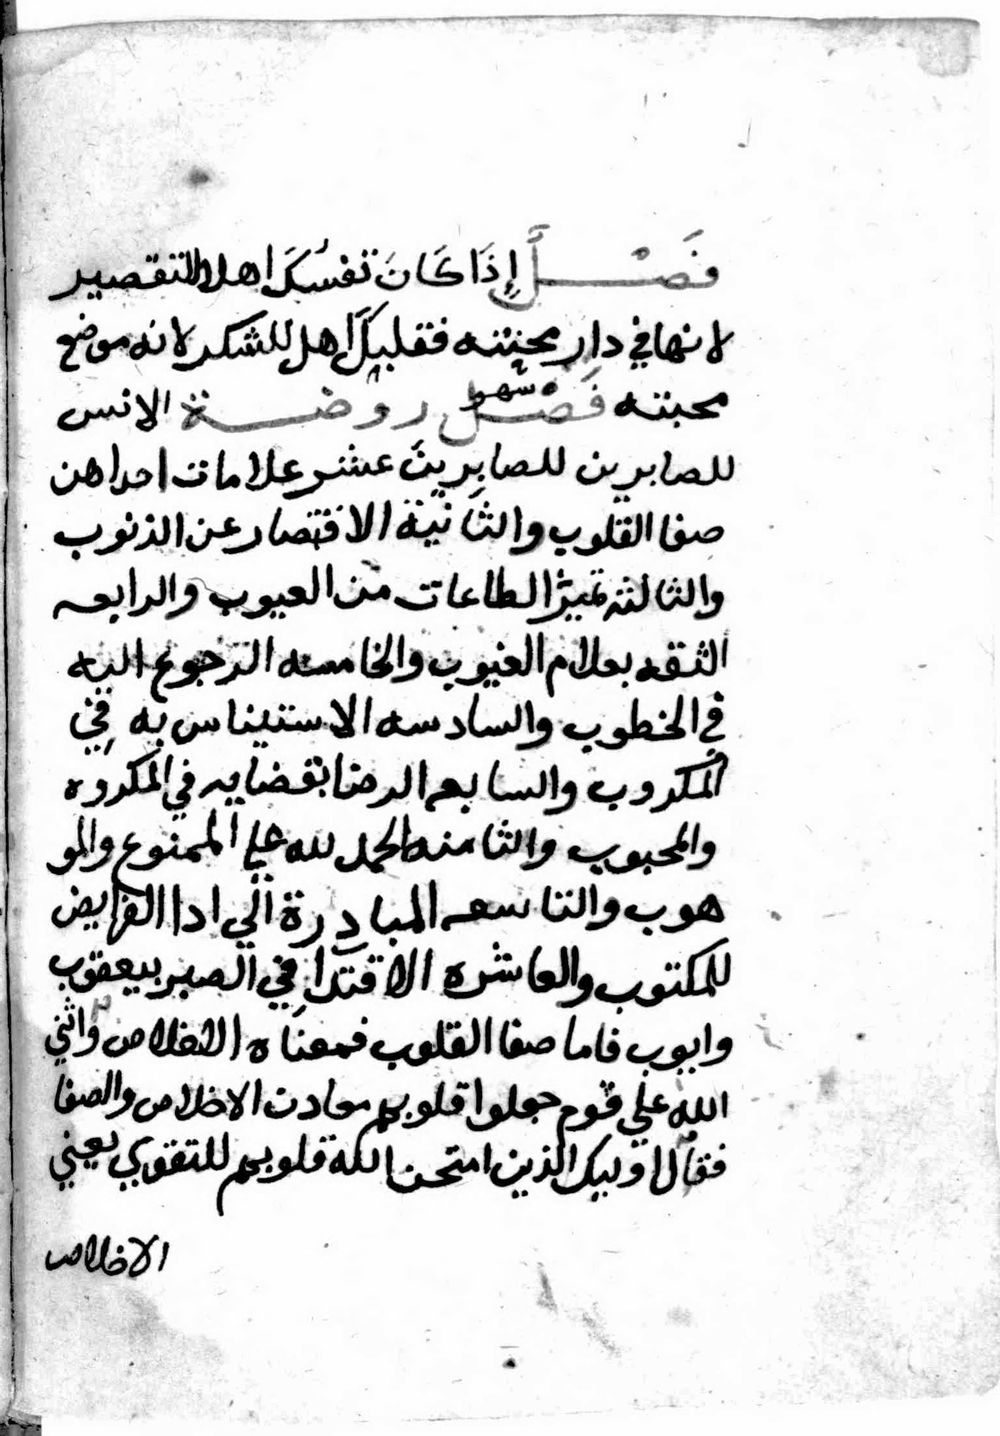 فَصْل إِذَا كَانَ نفسُكَ اهلا للتقصير
لانها في دار محنته فقلبك اهل للشكر لانه موضع
محبته فَصْل روضة الانس
سهو
للصابرين للصابِرِينَ عشر علامات احداهن
صفا القلوب والثانية الاقتصار عن الذنوب
والثالثة تميّز الطاعات من العيوب والرابعه
الثقه بعلام الغيوب والخامسه الرجوع اليه
في الخطوب والسادسه الاستيناس به في
المكروب والسابعه الرضا بقضايه في المكروه
والمحبوب والثامنه الحمد لله علي الممنوع والمو
هوب والتاسعه المبادِرة الي ادا الفرايض
للمكتوب والعاشره الاقتدا في الصبر بيعقوب
وايوب فاما صفا القلوب فمعناه الاخلاص واثني
الله علي قوم جعلوا قلوبهم معادن الاخلاص والصفا
فقال اوليك الذين امتحن الله قلوبهم للتقوي يعني
الاخلاص